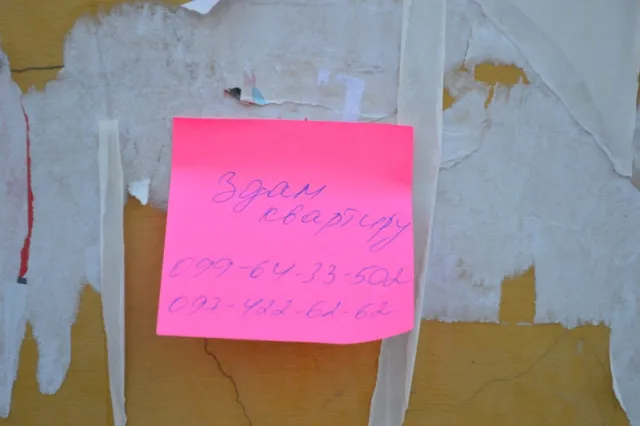 Здам
квартиру
099-64-33-502
097-422-62-62